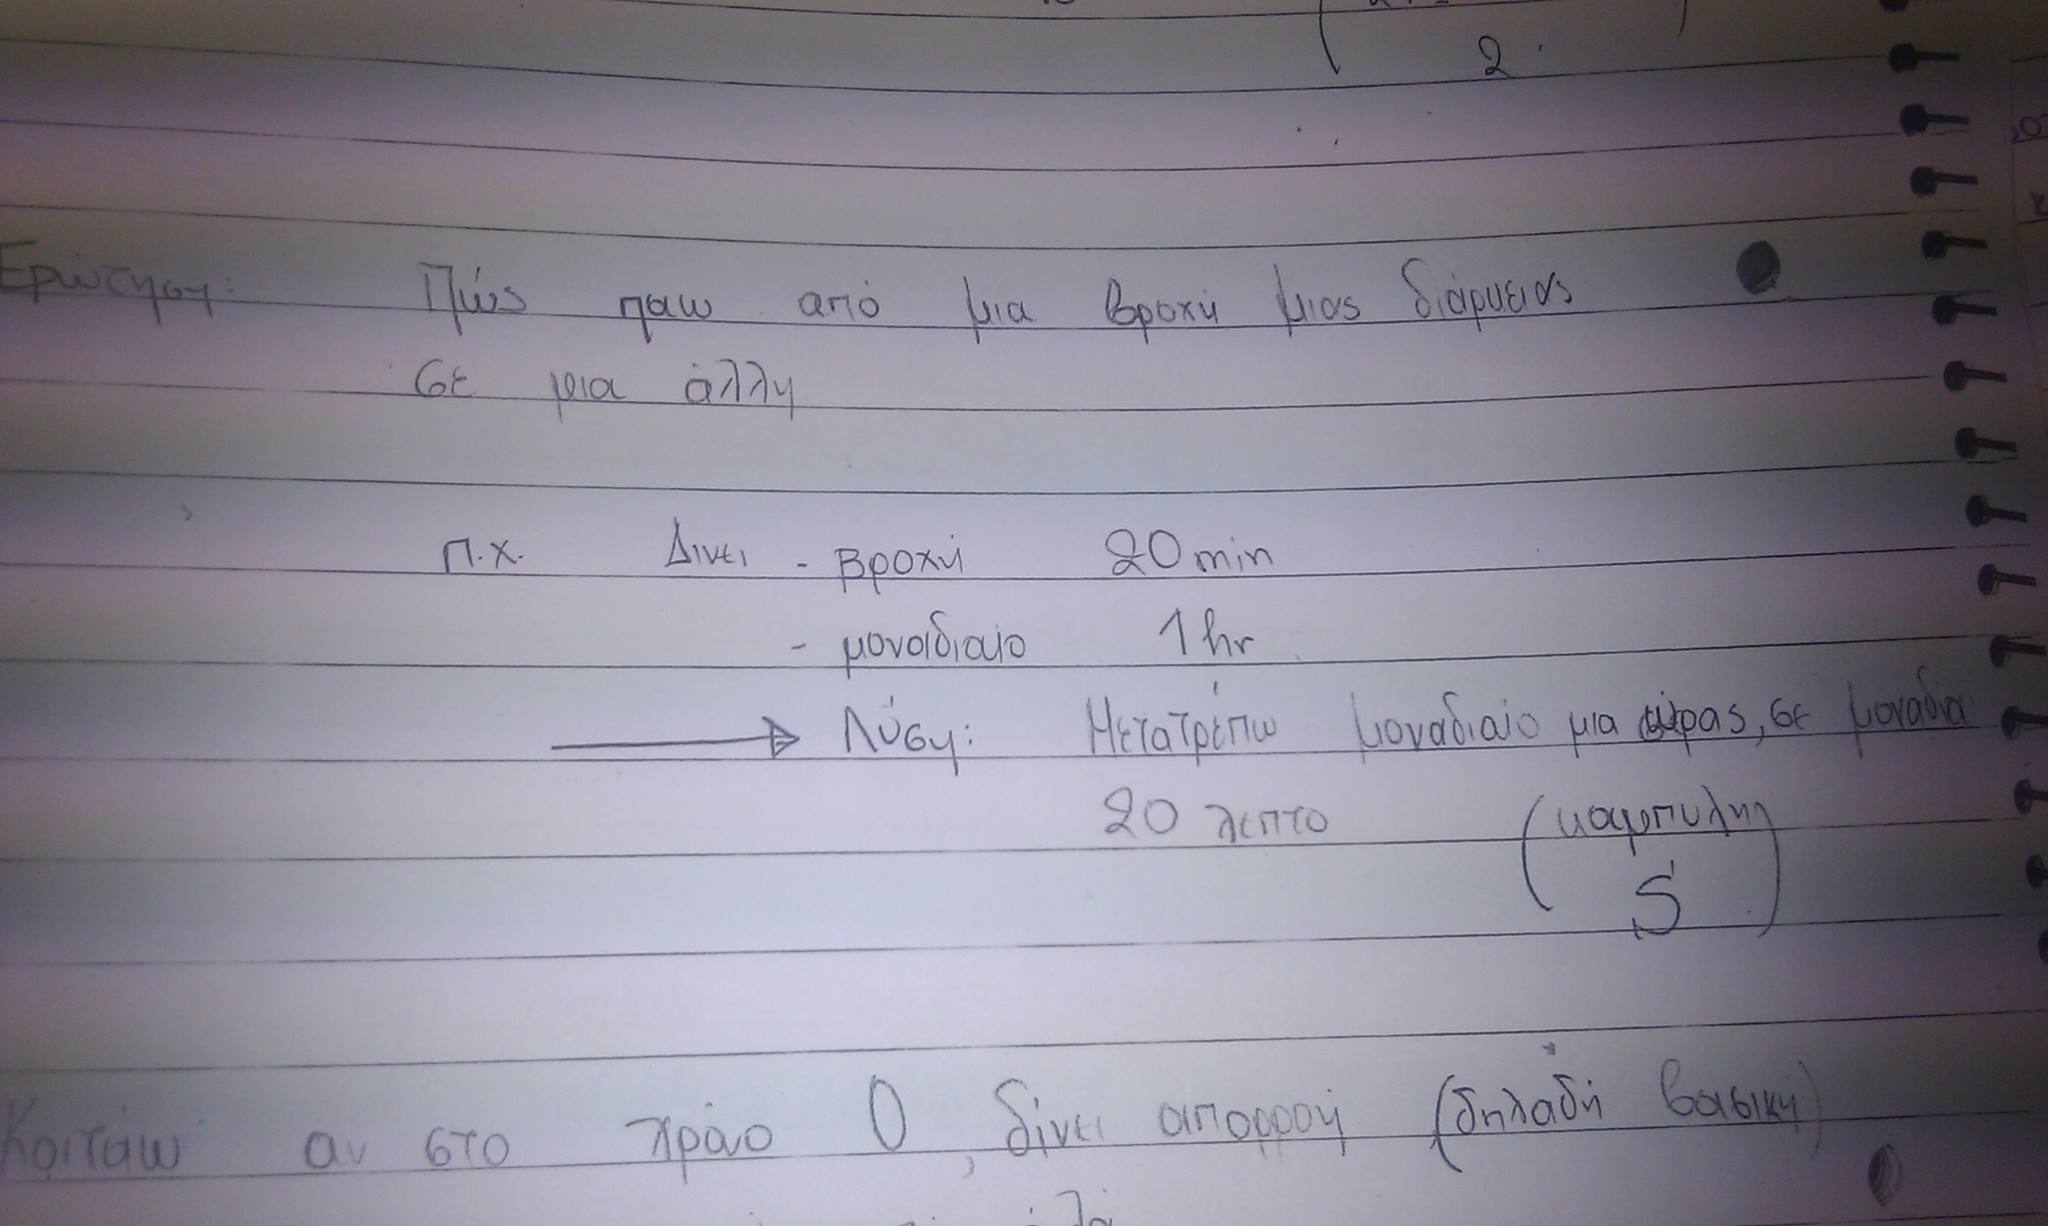 2
Ερώτηση: Πώς παω από μια βροχή μιας διάρκειας
σε μια άλλη
π.χ. Δινει - βροχή 20 min
- μοναδιαίο 1 hr
Λύση: Μετατρέπω μοναδιαίο μια ώρας, σε μοναδια
20 λεπτο (καμπυλη
S)
Κοιτάω αν στο χρόνο 0, δίνει απορροή (δηλαδή βασική)